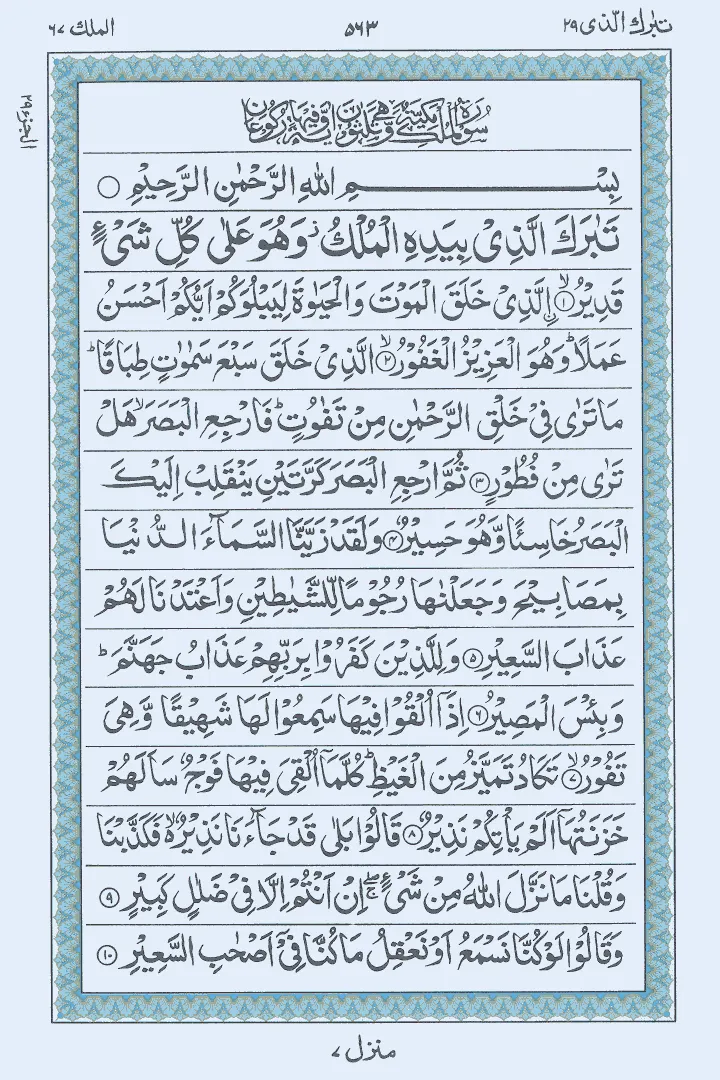 تبٰرك الّذی ٢٩
٥٦٣
الملك ٦٧
الجزء ٢٩
سُوْرَةُ الْمُلْكِ مَكِّيَّةٌ وَّهِيَ ثَلٰثُوْنَ اٰيَةً وَّفِيْهَا رُكُوْعَانِ
بِسْــــــــــــمِ اللّٰهِ الرَّحْمٰنِ الرَّحِيْمِ ○
تَبٰرَكَ الَّذِیْ بِيَدِهِ الْمُلْكُ ۡ وَهُوَ عَلٰى كُلِّ شَیْءٍ
قَدِيْرُۨ ۙ﴿١﴾ الَّذِیْ خَلَقَ الْمَوْتَ وَالْحَيٰوةَ لِيَبْلُوَكُمْ اَيُّكُمْ اَحْسَنُ
عَمَلًا ؕ وَهُوَ الْعَزِيْزُ الْغَفُوْرُ ۙ﴿٢﴾ الَّذِیْ خَلَقَ سَبْعَ سَمٰوٰتٍ طِبَاقًا ؕ
مَا تَرٰى فِیْ خَلْقِ الرَّحْمٰنِ مِنْ تَفٰوُتٍ ؕ فَارْجِعِ الْبَصَرَ ۙ هَلْ
تَرٰى مِنْ فُطُوْرٍ ﴿٣﴾ ثُمَّ ارْجِعِ الْبَصَرَ كَرَّتَيْنِ يَنْقَلِبْ اِلَيْكَ
الْبَصَرُ خَاسِئًا وَّهُوَ حَسِيْرٌ ﴿٤﴾ وَلَقَدْ زَيَّنَّا السَّمَآءَ الدُّنْيَا
بِمَصَابِيْحَ وَجَعَلْنٰهَا رُجُوْمًا لِّلشَّيٰطِيْنِ وَاَعْتَدْنَا لَهُمْ
عَذَابَ السَّعِيْرِ ﴿٥﴾ وَلِلَّذِيْنَ كَفَرُوْا بِرَبِّهِمْ عَذَابُ جَهَنَّمَ ؕ
وَبِئْسَ الْمَصِيْرُ ﴿٦﴾ اِذَاۤ اُلْقُوْا فِيْهَا سَمِعُوْا لَهَا شَهِيْقًا وَّهِیَ
تَفُوْرُ ۙ﴿٧﴾ تَكَادُ تَمَيَّزُ مِنَ الْغَيْظِ ؕ كُلَّمَاۤ اُلْقِیَ فِيْهَا فَوْجٌ سَاَلَهُمْ
خَزَنَتُهَاۤ اَلَمْ يَاْتِكُمْ نَذِيْرٌ ﴿٨﴾ قَالُوْا بَلٰى قَدْ جَآءَنَا نَذِيْرٌ ۙ۬ فَكَذَّبْنَا
وَقُلْنَا مَا نَزَّلَ اللّٰهُ مِنْ شَیْءٍ ۚۖ اِنْ اَنْتُمْ اِلَّا فِیْ ضَلٰلٍ كَبِيْرٍ ﴿٩﴾
وَقَالُوْا لَوْ كُنَّا نَسْمَعُ اَوْ نَعْقِلُ مَا كُنَّا فِیْۤ اَصْحٰبِ السَّعِيْرِ ﴿١٠﴾
منزل ٧